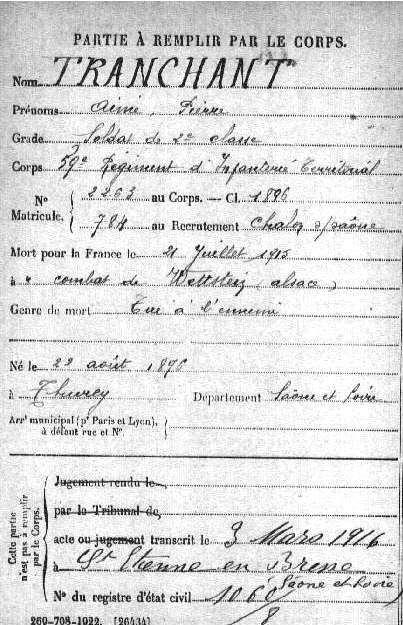 PARTIE À REMPLIR PAR LE CORPS.
Nom TRANCHANT
Prénoms Aimé, Pierre
Grade Soldat de 2e classe
Corps 59e Régiment d'Infanterie Territorial
No 2263 au Corps. — Cl. 1896
Matricule. 784 au Recrutement Chalon s/Saône
Mort pour la France le 21 Juillet 1915
à combat de Wettstein (alsace)
Genre de mort Tué à l'ennemi
Né le 22 août 1876
à Thurey Département Saône et Loire
Arrt municipal (pr Paris et Lyon),
à défaut rue et No.
Cette partie
n'est pas à remplir
par le Corps.
Jugement rendu le
par le Tribunal de
acte ou jugement transcrit le 3 Mars 1916
à St Etienne en Bresse
(Saône et Loire)
No du registre d'état civil 1060/8
260-708-1922. [26434]